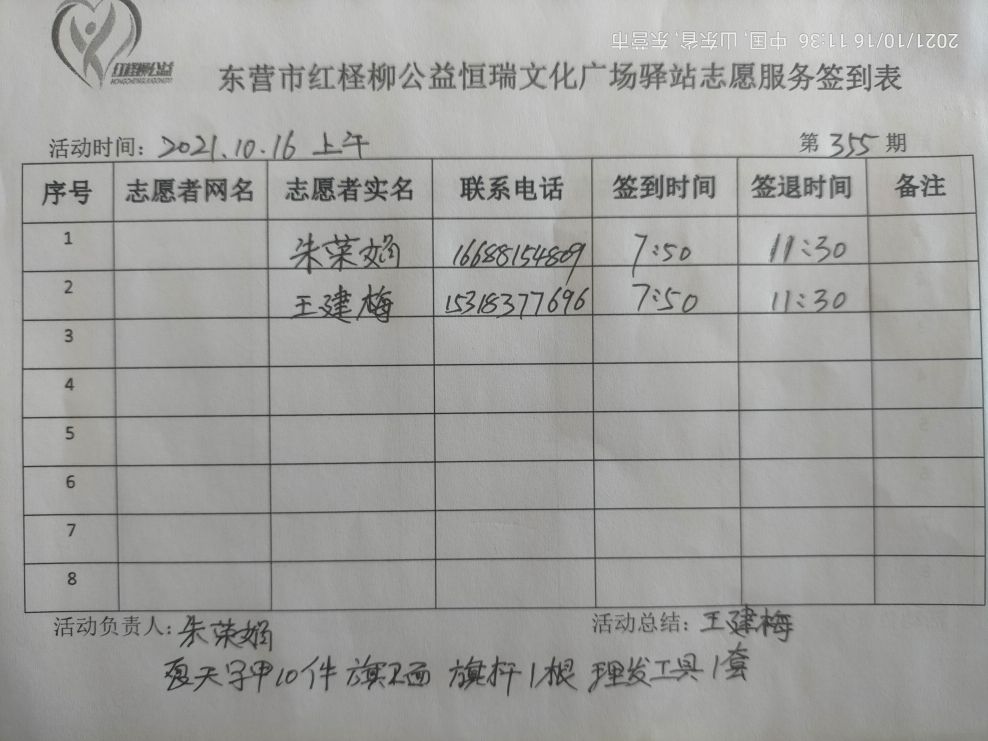 2021/10/16 11:36 中国, 山东省, 东营市
红柽柳公益
东营市红柽柳公益恒瑞文化广场驿站志愿服务签到表
活动时间: 2021.10.16 上午 第 355 期
序号 志愿者网名 志愿者实名 联系电话 签到时间 签退时间 备注
1 朱荣娟 16688154809 7:50 11:30
2 王建梅 15318377696 7:50 11:30
3
4
5
6
7
8
活动负责人: 朱荣娟 活动总结: 王建梅
夏天马甲10件 旗2面 旗杆1根 理发工具1套